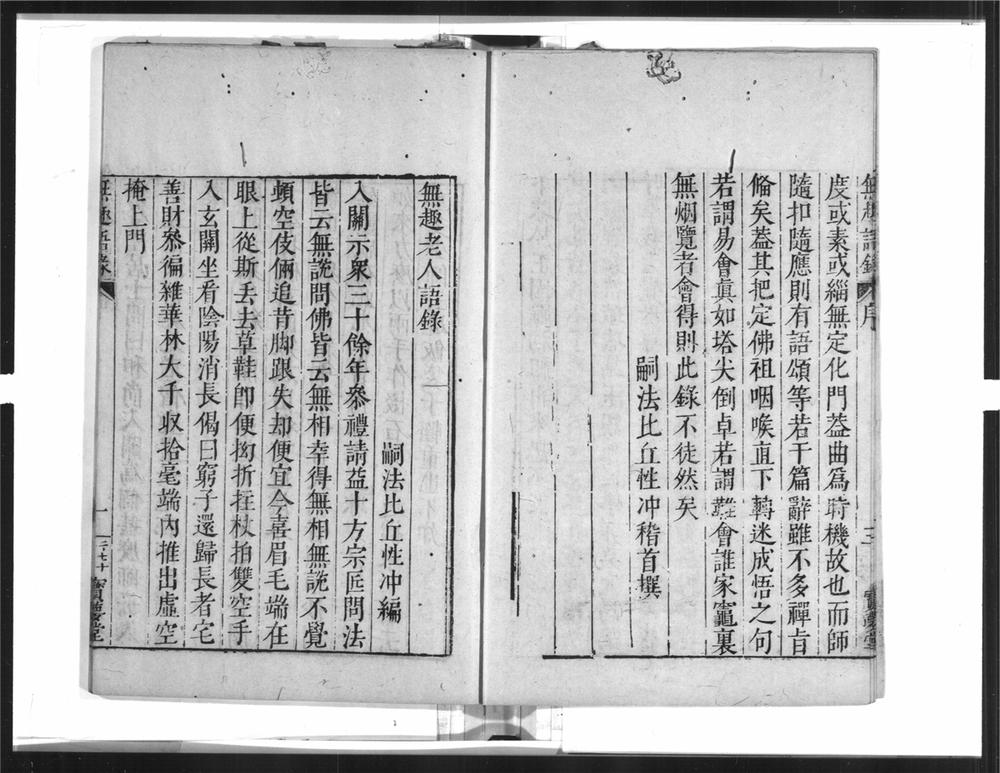 無趣語錄 序
度或素或緇無定化門葢曲爲時機故也而師
隨扣隨應則有語頌等若干篇辭雖不多禪旨
備矣葢其把定佛祖咽喉直下轉迷成悟之句
若謂易會眞如塔尖倒卓若謂難會誰家竈裏
無烟覽者會得則此錄不徒然矣
嗣法比丘性冲稽首撰
無趣老人語錄
嗣法比丘性冲編
入關示衆三十餘年叅禮請益十方宗匠問法
皆云無說問佛皆云無相幸得無相無說不覺
頓空伎倆追昔脚跟失却便宜今喜眉毛端在
眼上從斯丟去草鞋卽便拗折拄杖拍雙空手
入玄關坐看陰陽消長偈曰窮子還歸長者宅
善財叅徧雜華林大千収拾毫端內推出虛空
掩上門
無趣語錄 一